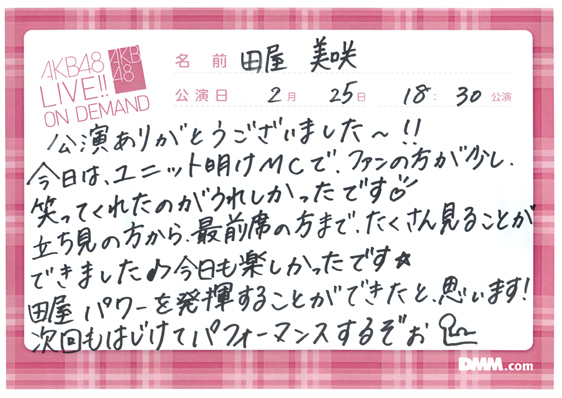 AKB48
LIVE!!
ON DEMAND
AKB
48
名前 田屋 美咲
公演日 2月 25日 18:30公演
公演ありがとうございました〜!!
今日は、ユニット明けMCで、ファンの方が少し、
笑ってくれたのがうれしかったです
立ち見の方から、最前席の方まで、たくさん見ることが
できました♪今日も楽しかったです☆
田屋パワーを発揮することができたと、思います!
次回もはじけてパフォーマンスするぞぉ
DMM.com